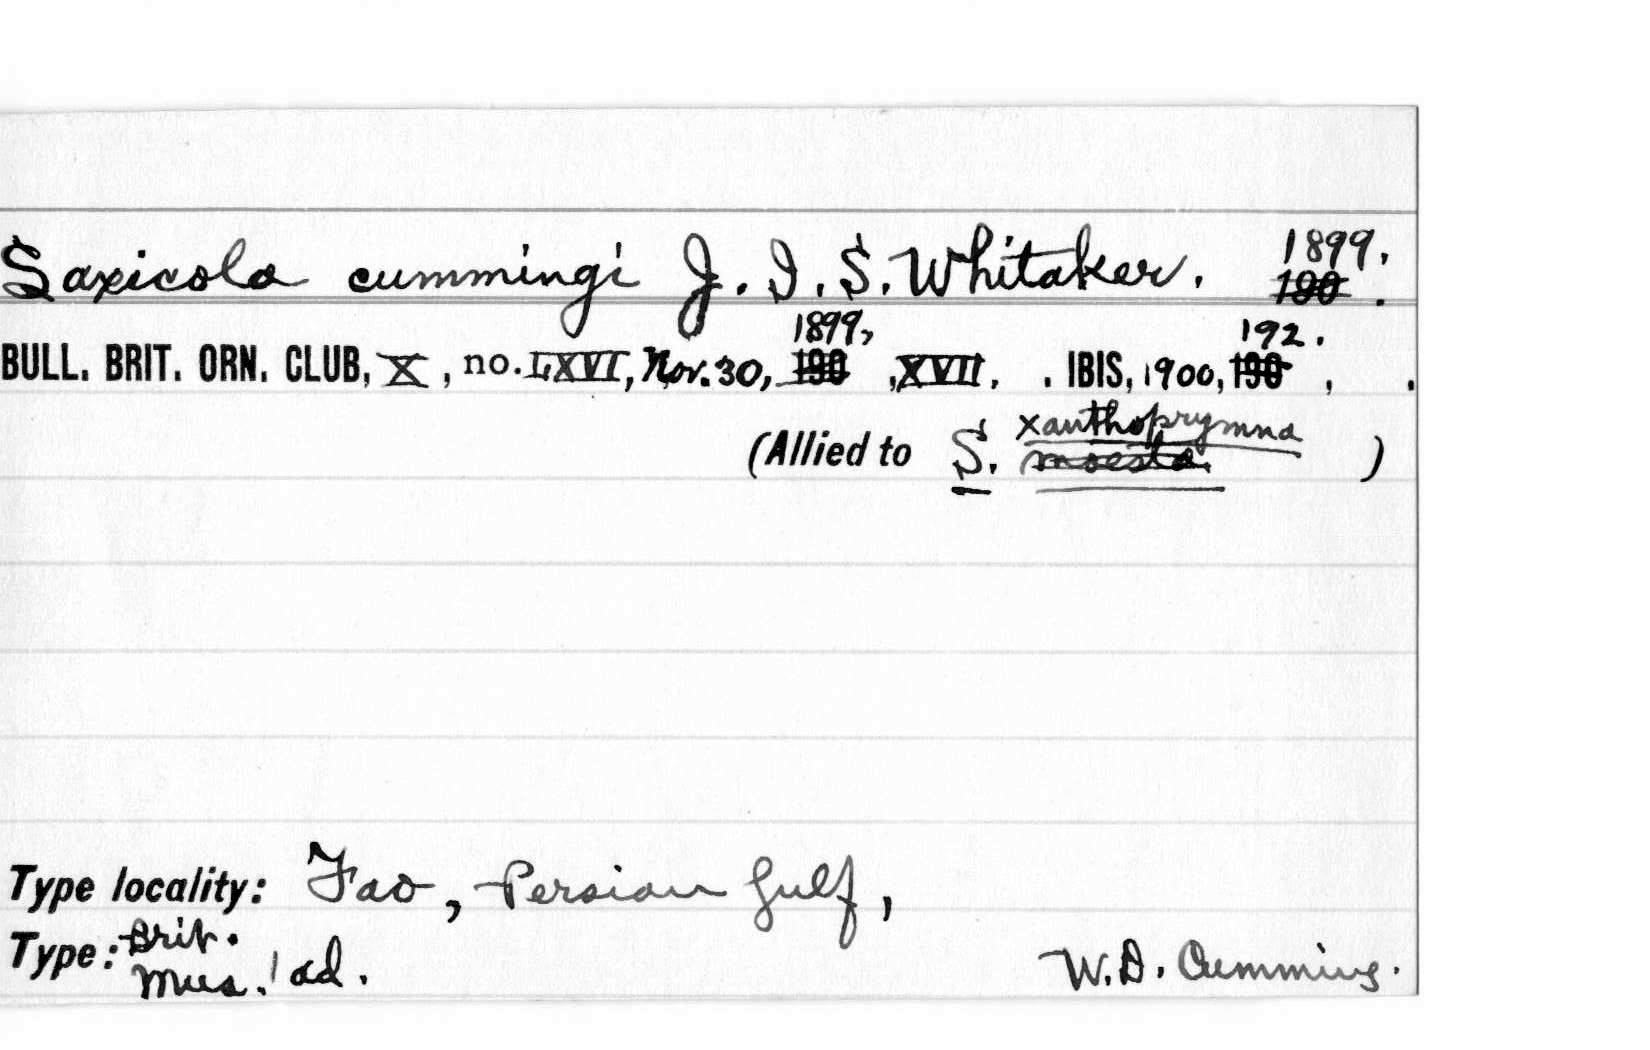 Saxicola cummingi J. I. S. Whitaker. 1899.
190 .
1899, 192.
BULL. BRIT. ORN. CLUB, X, no. LXVI, Nov. 30, 190 , XVII. . IBIS, 1900, 190 , .
xanthoprymna
(Allied to S. moesta. )
Type locality: Fao, Persian Gulf,
Brit.
Type: Mus. 1 ad. W. D. Cumming.